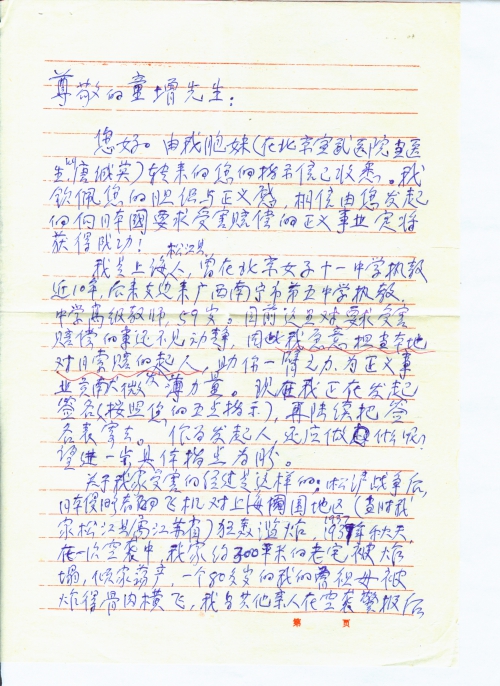 尊敬的童增先生：
您好。由我胞妹（在北京宣武医院当医
生的唐诚英）转来的您的指示信已收悉。我
钦佩您的胆识与正义感，相信由您发起
的向日本國要求受害赔偿的正义事业定将
获得成功！
松江县
我是上海人，曾在北京女子十一中学执教
近10年，后来支边来广西南宁市第五中学执教，
中学高级教师，59岁。目前这里对要求受害
赔偿的事还不见动静，因此我愿意担当本地
对日索赔的起人，助你一臂之力，为正义事
业贡献微薄力量。现在我正在发起
签名（按照您的五点指示），再陆续把签
名表寄去。你为发起人，还应做什么呢？
望进一步具体指点为盼。
关于我家受害的经过是这样的：松沪战争后，
日本侵略者的飞机对上海周围地区（当时我
家松江县属江苏省）狂轰滥炸，1937年秋天，
在一次空袭中，我家约300平米的老宅被炸
塌，倾家荡产，一个80多岁的我的曾祖母被
炸得骨肉横飞，我与其他亲人在空袭警报后
第 页